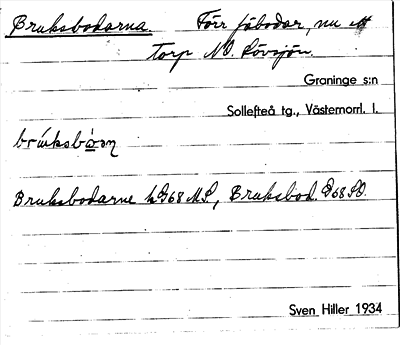 Bruksbodarna. Förr fäbodar, nu ett
torp NO. Lövsjön.
Graninge s:n
Sollefteå tg., Västernorrl. l.
Bruksbodarne
Bruksbod.
Sven Hiller 1934